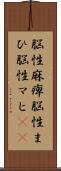 脳性麻痺脳性ま
ひ脳性マヒ